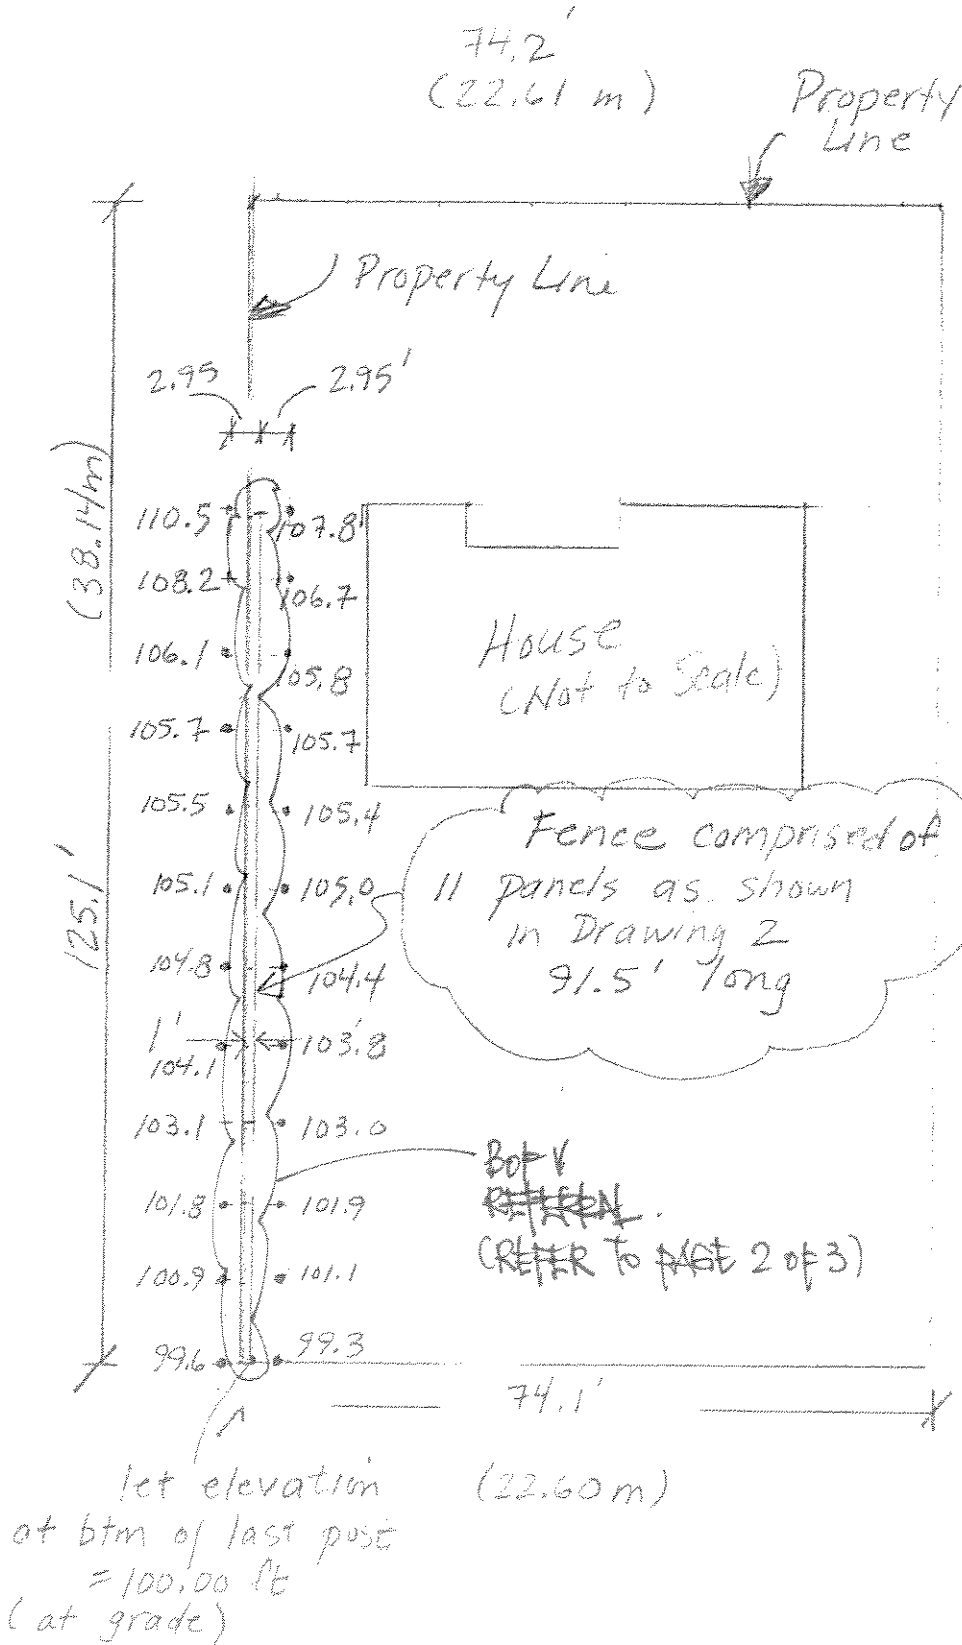 74.2'
(22.61 m)
Property
Line
Property Line
2.95
2.95'
(38.14m)
125.1'
110.5
107.8'
108.2
106.7
106.1
105.8
105.7
105.7
105.5
105.4
105.1
105.0
104.8
104.4
1'
104.1
103.8
103.1
103.0
101.8
101.9
100.9
101.1
99.6
99.3
House
(Not to Scale)
Fence comprised of
11 panels as shown
in Drawing 2
91.5' long
(REFER TO PAGE 2 of 3)
74.1'
(22.60m)
let elevation
at btm of last post
= 100.00 ft
(at grade)